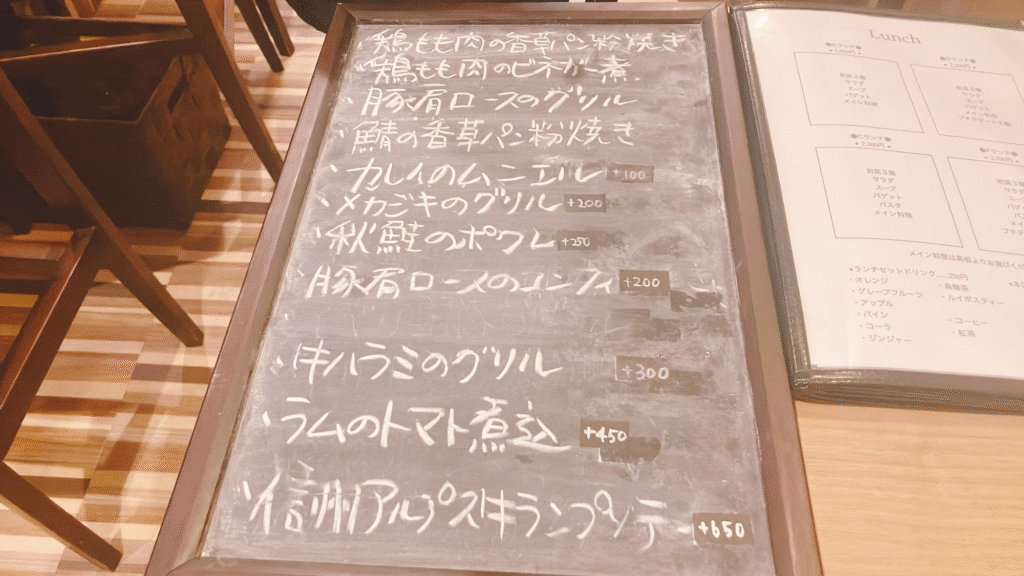 ・鶏もも肉の香草パン粉焼き
・鶏もも肉のビネガー煮
・豚肩ロースのグリル
・鯖の香草パン粉焼き
・カレイのムニエル +100
・メカジキのグリル +200
・秋鮭のポワレ +250
・豚肩ロースのコンフィ +200
・牛ハラミのグリル +300
・ラムのトマト煮込 +450
・信州アルプス牛ランプソテー +650
Lunch
前菜3種
サラダ
スープ
バゲット
メイン料理
前菜3種
サラダ
スープ
バゲット
メイン料理
●Cランチ●
前菜3種
サラダ
スープ
バゲット
パスタ
メイン料理
メイン料理は黒板よりお選びくだ
●ランチセットドリンク
・オレンジ
・グレープフルーツ
・アップル
・パイン
・コーラ
・ジンジャー
・烏龍茶
・ルイボスティー
・コーヒー
・紅茶